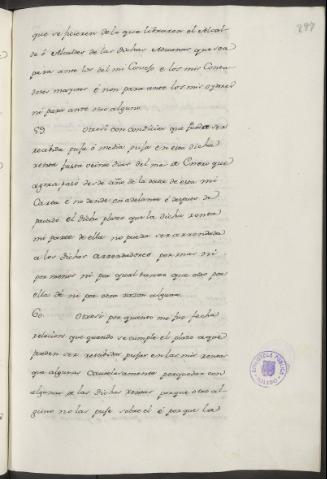 297
que se ficieren de lo que libraren el Alcal-
de ó Alcaldes de las dichas Aduanas que sea
para ante los del mi Consejo é los mis Conta
dores mayores é non para ante los mis oydores
ni para ante otro alguno
59 Otrosi con condicion que pueda ser
recebida puja ó media puja en esta dicha
renta fasta veinte dias del mes de Enero que
agora pasó deste año de la data de esta mi
Carta é no dende en adelante é despues de
pasado el dicho plazo que la dicha renta
ni parte de ella no pueda ser arrendada
a los dichos arrendadores por mas ni
por menos ni por qual tanto que otro por
ella dé ni por otra razon alguna
60. Otrosi por quanto me fue fecha
relacion que quando se cumple el plazo a que
pueden ser recebidas pujas en las mis rentas
que algunos Cautelosamente por quedar con
algunas de las dichas rentas porque otro al
guno no las puje sobre él é porque la
BIBLIOTECA PUBLICA
TOLEDO